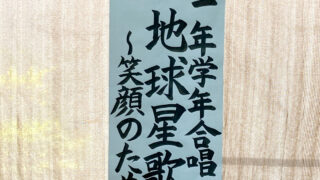 一年学年合唱
地球星歌
～笑顔のため